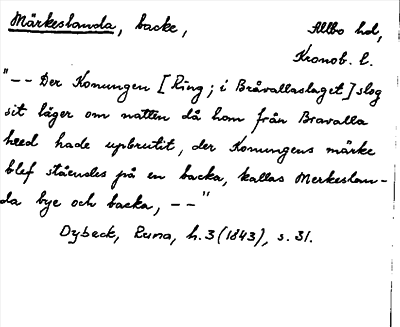 Märkeslanda, backe, Allbo hd,
Kronob. l.
"-- Der Konungen [Ring; i Bråvallaslaget] slog
sit läger om natten då han från Bravalla
heed hade upbrutit, der Konungens märke
blef ståendes på en backa, kallas Merkeslan-
da bye och backa, --"
Dybeck, Runa, h. 3 (1843), s. 31.